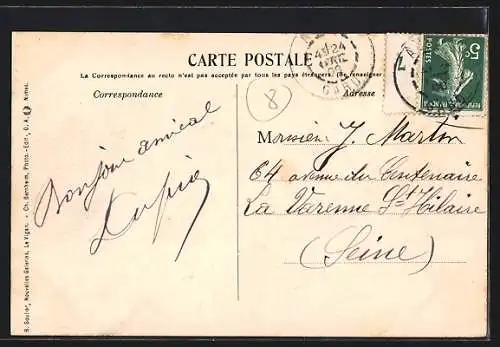 CARTE POSTALE
La Correspondance au recto n'est pas acceptée par tous les pays étrangers. (Se renseigner
Correspondance
Adresse
8
Bonjour amical
Monsieur J. Martin
64 avenue du Centenaire
La Varenne St Hilaire
(Seine)
POSTES
5c
GARD
B. Soulier, Nouvelles Galeries, Le Vigan. - Ch. Bernheim, Photo.-Edit., Nimes.